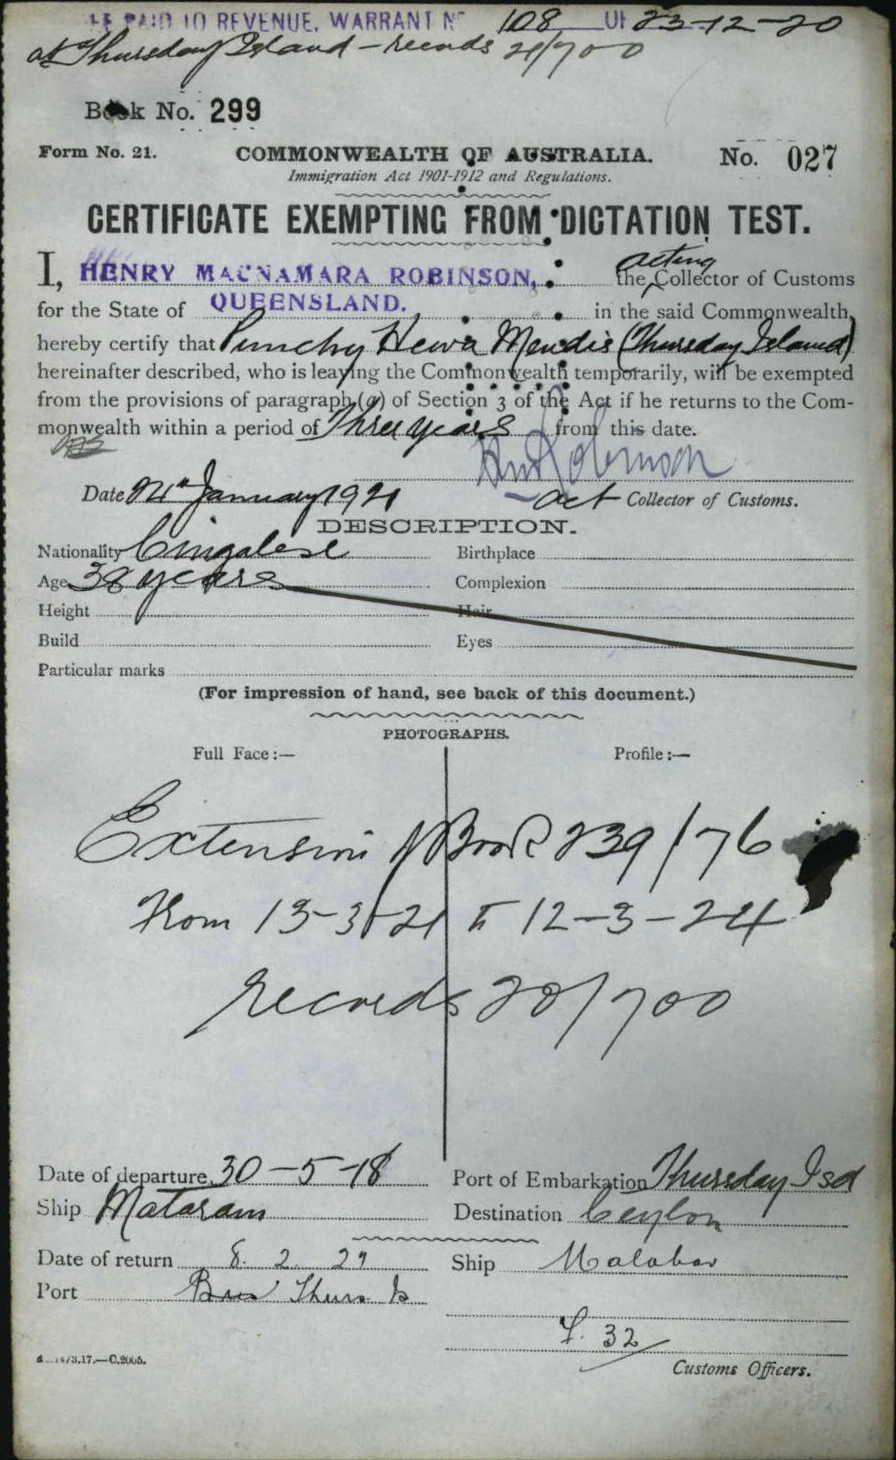 PAID TO REVENUE, WARRANT No 108 OF 23-12-20
at Thursday Island - records 20/700
Book No. 299
Form No. 21. COMMONWEALTH OF AUSTRALIA. No. 027
Immigration Act 1901-1912 and Regulations.
CERTIFICATE EXEMPTING FROM DICTATION TEST.
I, HENRY MACNAMARA ROBINSON, the acting Collector of Customs
for the State of QUEENSLAND. in the said Commonwealth,
hereby certify that Punchy Hewa Mendis (Thursday Island)
hereinafter described, who is leaving the Commonwealth temporarily, will be exempted
from the provisions of paragraph (a) of Section 3 of the Act if he returns to the Com-
monwealth within a period of Three years from this date.
HMRobinson
Date 24th January 1921 Act Collector of Customs.
DESCRIPTION.
Nationality Cingalese Birthplace
Age 38 years Complexion
Height Hair
Build Eyes
Particular marks
(For impression of hand, see back of this document.)
PHOTOGRAPHS.
Full Face :— Profile :—
Extension of Book 239/76
From 13-3-21 to 12-3-24
records 20/700
Date of departure 30-5-18 Port of Embarkation Thursday Isd
Ship Mataram Destination Ceylon
Date of return 8. 2. 29 Ship Malabar
Port Thurs Is
32
Customs Officers.
14/3.17.—C.2005.